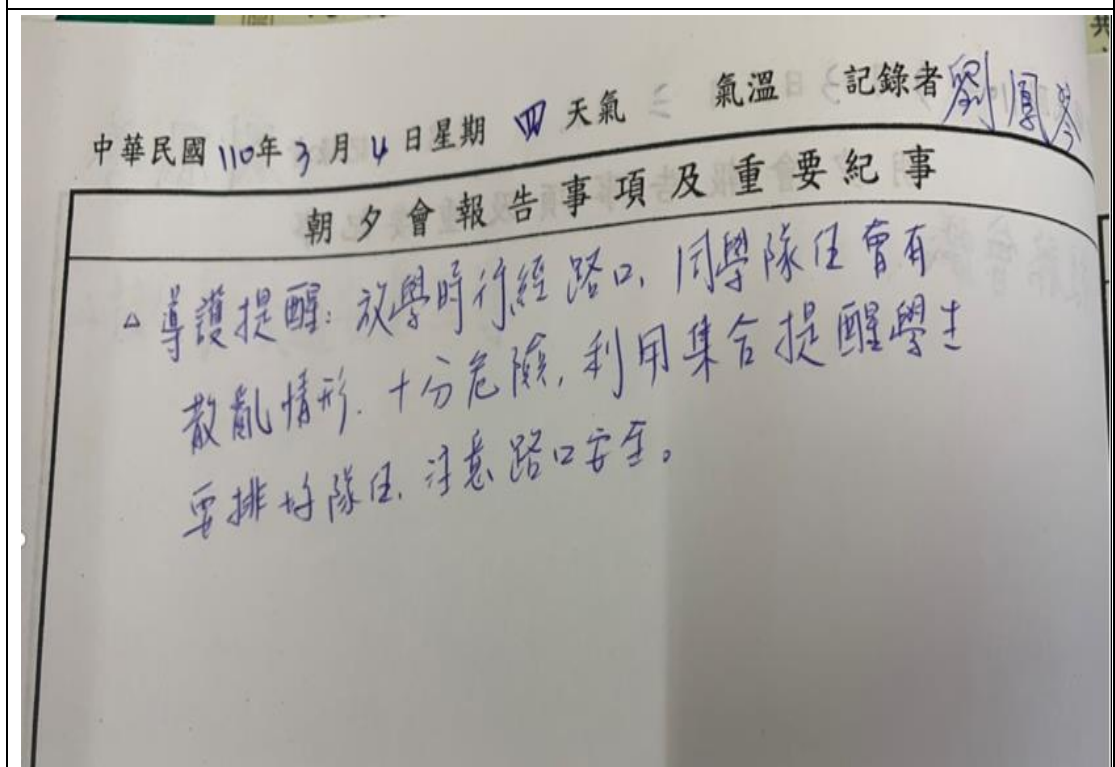 中華民國110年3月4日星期四天氣 氣溫 記錄者劉鳳琴
朝夕會報告事項及重要紀事
△導護提醒:放學時行經路口,同學隊伍會有
散亂情形.十分危險,利用集合提醒學生
要排好隊伍,注意路口安全。
共